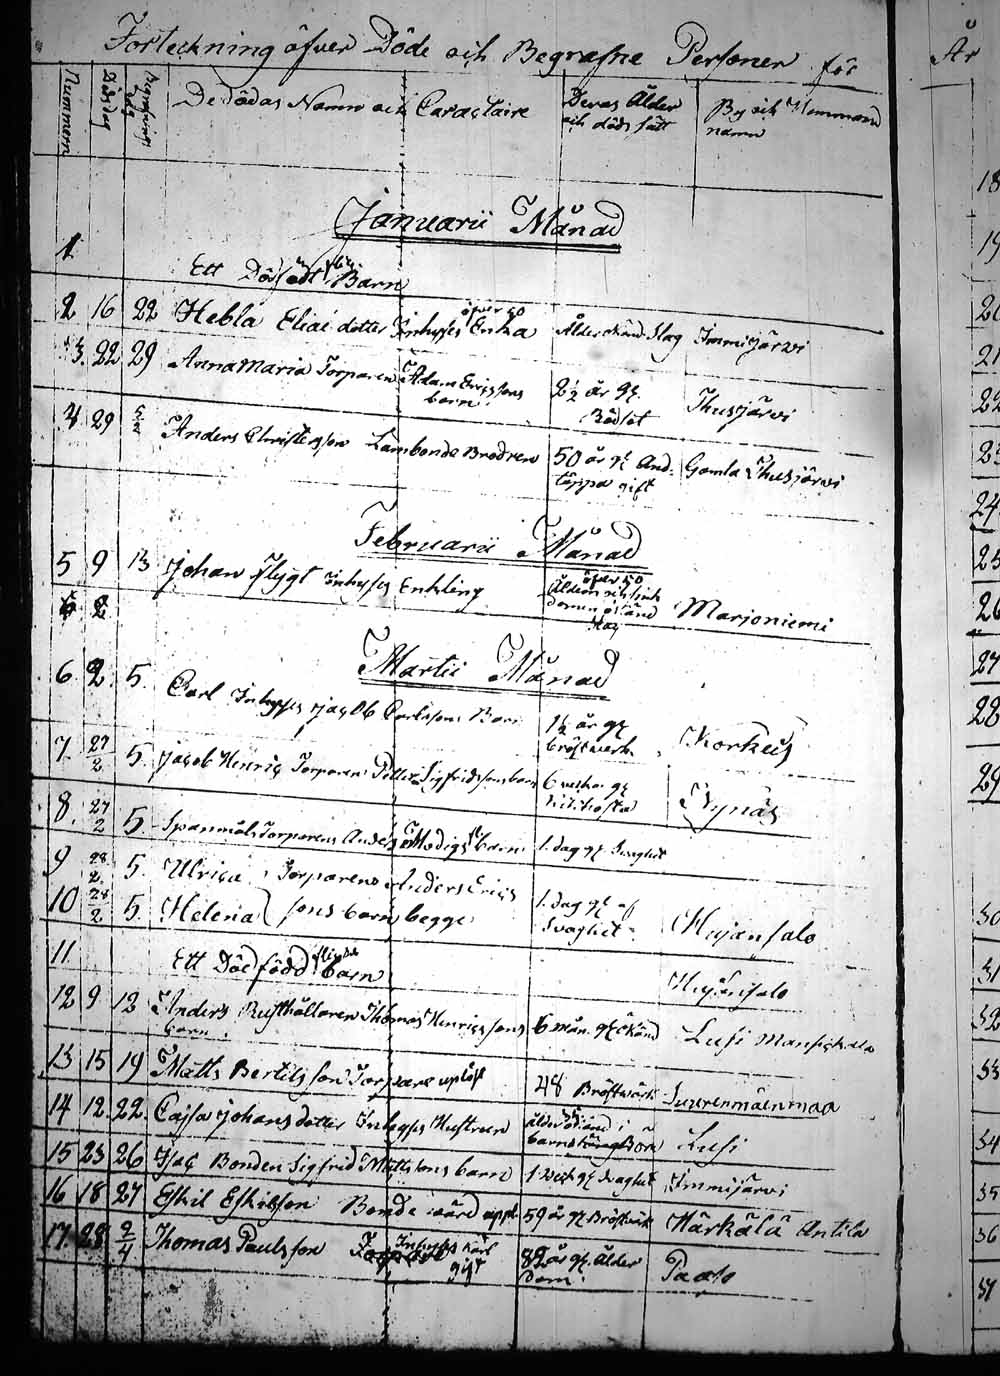 Förteckning öfver Döde och Begrafne Personer för
Nummern Dödsdag Begrafnings dag De dödas Namn och Caractaire Deras Ålder och dödssätt By och Hemmans namn
Januarii Månad
1
Ett Dödfödt Barn
öfver 50
2 16 22 Hebla Eliæ dotter Inhyses Enka Ålder okänd Slag Immijärvi
3. 22 29 Anna Maria Torparen Adam Ericssons barn 2½ år gl. Rödsot Ihusjärvi
4 29 Anders Christersson Lambonde Brodren 50 år gl And-täppa gift Gamla Ihusjärvi
Februarii Månad
5 9 13 Johan Flygt Inhyses Enkling öfver 50 Slag Marjoniemi
6 2
Martii Månad
6. 2. 5. Carl Inhyses Jacob Carlssons Barn 1½ år gl bröstverk Korkeis
7. 27/2 5. Jacob Henric Torparen Petter Sigfridssons barn 6 veckor gl kikhosta Nynäs
8. 27/2 5. Spanmåls Torparens Anders Modigs barn 1. dag gl Svaghet
9 28/2 5. Ulrica Torparens Anders Erics
10 28/2 5 Helena sons barn begge 1. dag gl af Svaghet Mujansalo
11 Ett Dödfödd barn Mujansalo
12 9 12 Anders Rusthållaren Thomas Henricssons barn. 6 mån. gl okänd Lusi Mansikala
13 15 19 Matts Bertilsson Torpare 48 Bröstvärk Suurenmäenmaa
14 12. 22. Cajsa Johans dotter Inhyses Hustrun ålder okänd i barnsängsbörd Lusi
15 23 26 Isac Bonden Sigfrid Mattssons barn 1 Veck gl Svaghet Immijärvi
16 18 27 Eskil Eskilsson Bonde 59 år gl Bröstvärk Härkälä Antila
17 28 2/4 Thomas Paulsson Inhyses karl gift 82 år gl. Ålderdom. Paaso
År
18
19
20
21
22
23
24
25
26
27
28
29
30
31
32
33
34
35
36
37